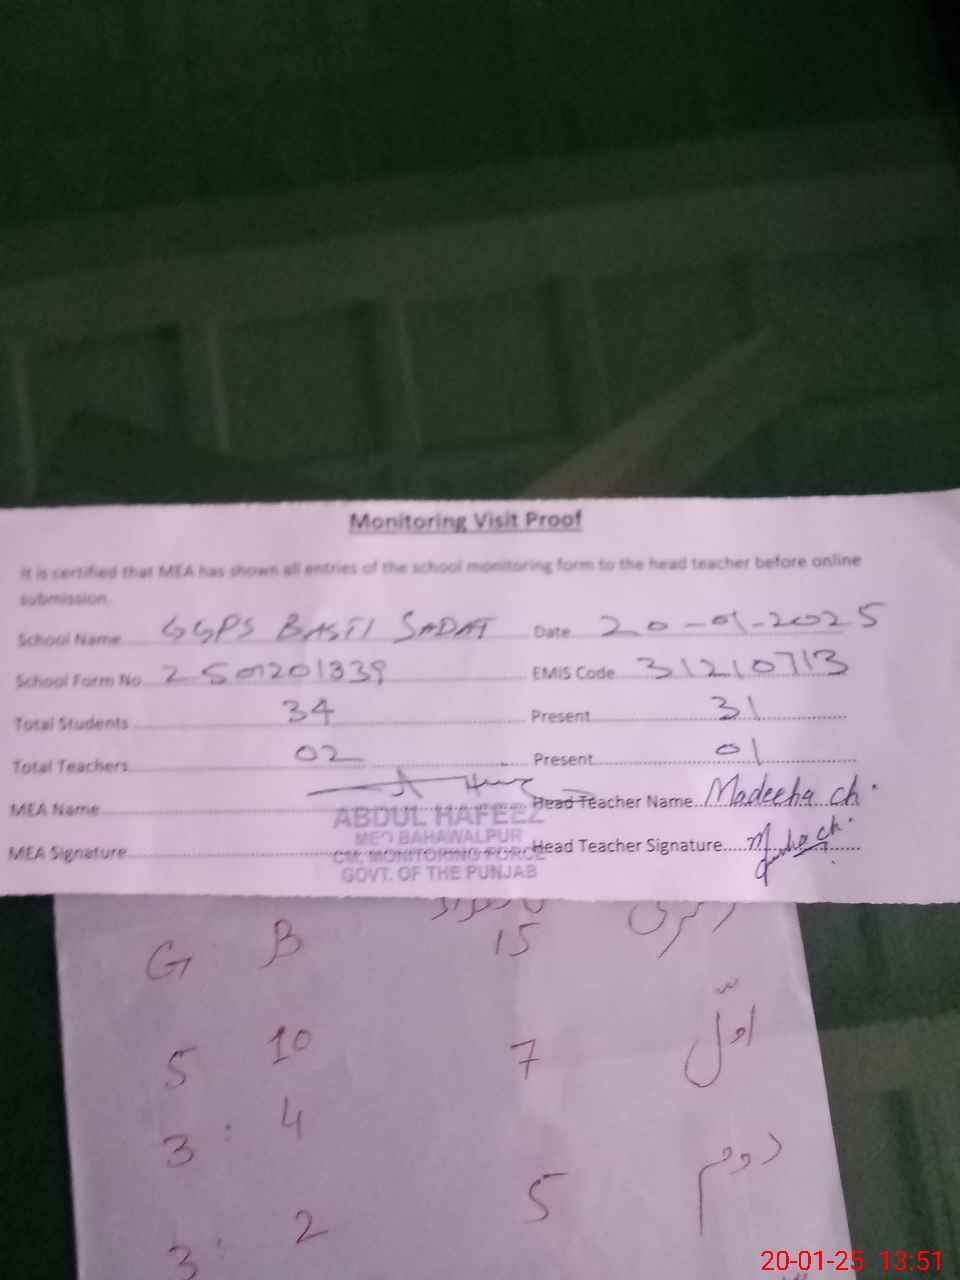 Monitoring Visit Proof
It is certified that MEA has shown all entries of the school monitoring form to the head teacher before online
submission.
School Name GGPS BASTI SADAT Date 20-01-2025
School Form No 2501201339 EMIS Code 31210713
Total Students 34 Present 31
Total Teachers 02 Present 01
MEA Name Head Teacher Name Madeeha ch.
ABDUL HAFEEZ
MEO BAHAWALPUR
MEA Signature Head Teacher Signature
CM, MONITORING FORCE
GOVT. OF THE PUNJAB
G B 15
5 10 7 اوّل
3 : 4
3 : 2 5 دوم
20-01-25 13:51